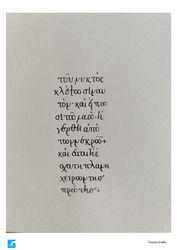 τοῦ νυκτὸς
κλέψουσιν αυ
τόν· καὶ ἤπω
σι τῶ λαῶ· ἠ
γέρθη ἀπὸ
τῶν νεκρῶν+
καὶ ἔσται ἡ ἐ
σχάτη πλάνη
χείρων τῆς
πρώτης+